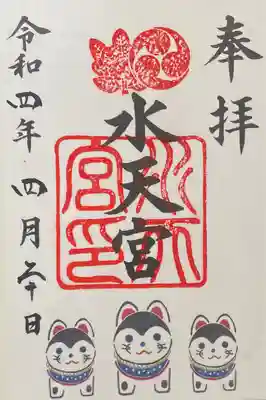 奉拝
水天宮
水天宮印
令和四年 四月二十日